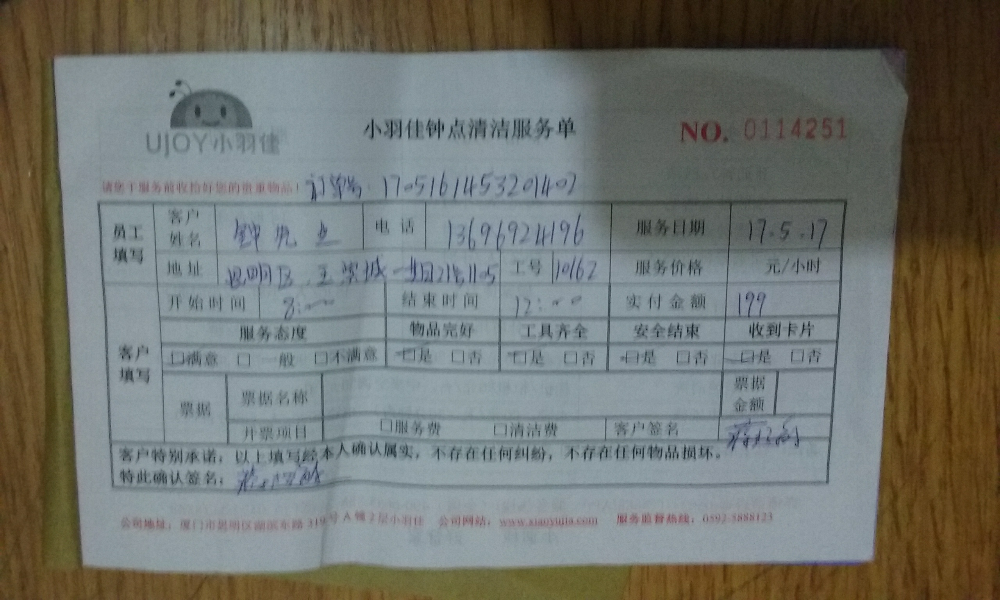 UJOY小羽佳
小羽佳钟点清洁服务单
NO. 0114251
请您于服务前收拾好您的贵重物品!
订单号: 1705161453201402
员工填写
客户姓名 钟先生 电话 13696924196 服务日期 17.5.17
地址 思明区 城一期21 1105 工号 10162 服务价格 元/小时
客户填写
开始时间 8: 结束时间 12: 实付金额 199
服务态度 物品完好 工具齐全 安全结束 收到卡片
□满意 □一般 □不满意 □是 □否 □是 □否 □是 □否 □是 □否
票据 票据名称 票据金额
开票项目 □服务费 □清洁费 客户签名
客户特别承诺:以上填写经本人确认属实,不存在任何纠纷,不存在任何物品损坏。
特此确认签名:
公司地址:厦门市思明区湖滨东路319号A幢2层小羽佳 公司网站:www.xiaoyujia.com 服务监督热线:0592-5888123